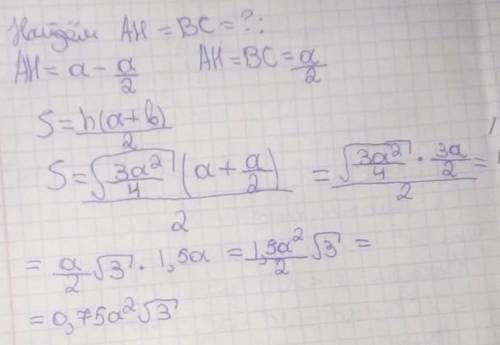 Найдём AH = BC = ?:
AH = a - a/2   AH = BC = a/2
S = h(a+b)/2
S = √(3a²/4) (a + a/2) / 2 = √(3a²/4) · 3a/2 / 2 =
= a/2 √3 · 1,5a = 1,5a²/2 √3 =
= 0,75a²√3